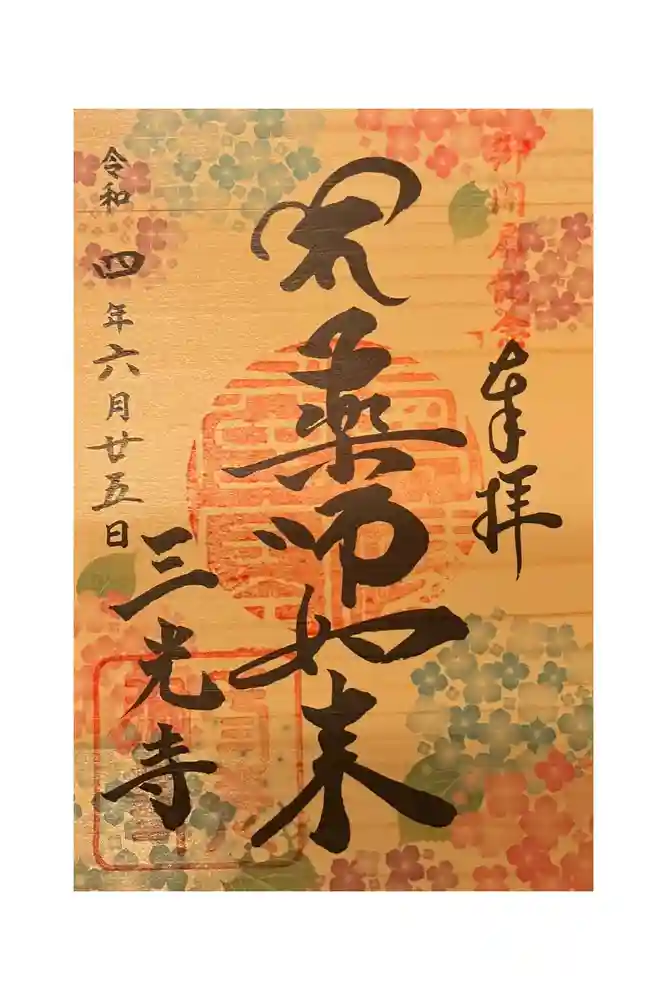 奉拝
薬師如来
三光寺
令和四年六月廿五日